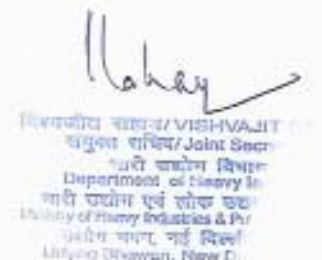 विश्वजीत सहाय/ VISHVAJIT
संयुक्त सचिव/ Joint Secr
भारी उद्योग विभाग
Department of Heavy In
भारी उद्योग एवं लोक उद्य
Ministry of Heavy Industries & Pu
उद्योग भवन, नई दिल्ली
Udyog Bhawan, New D